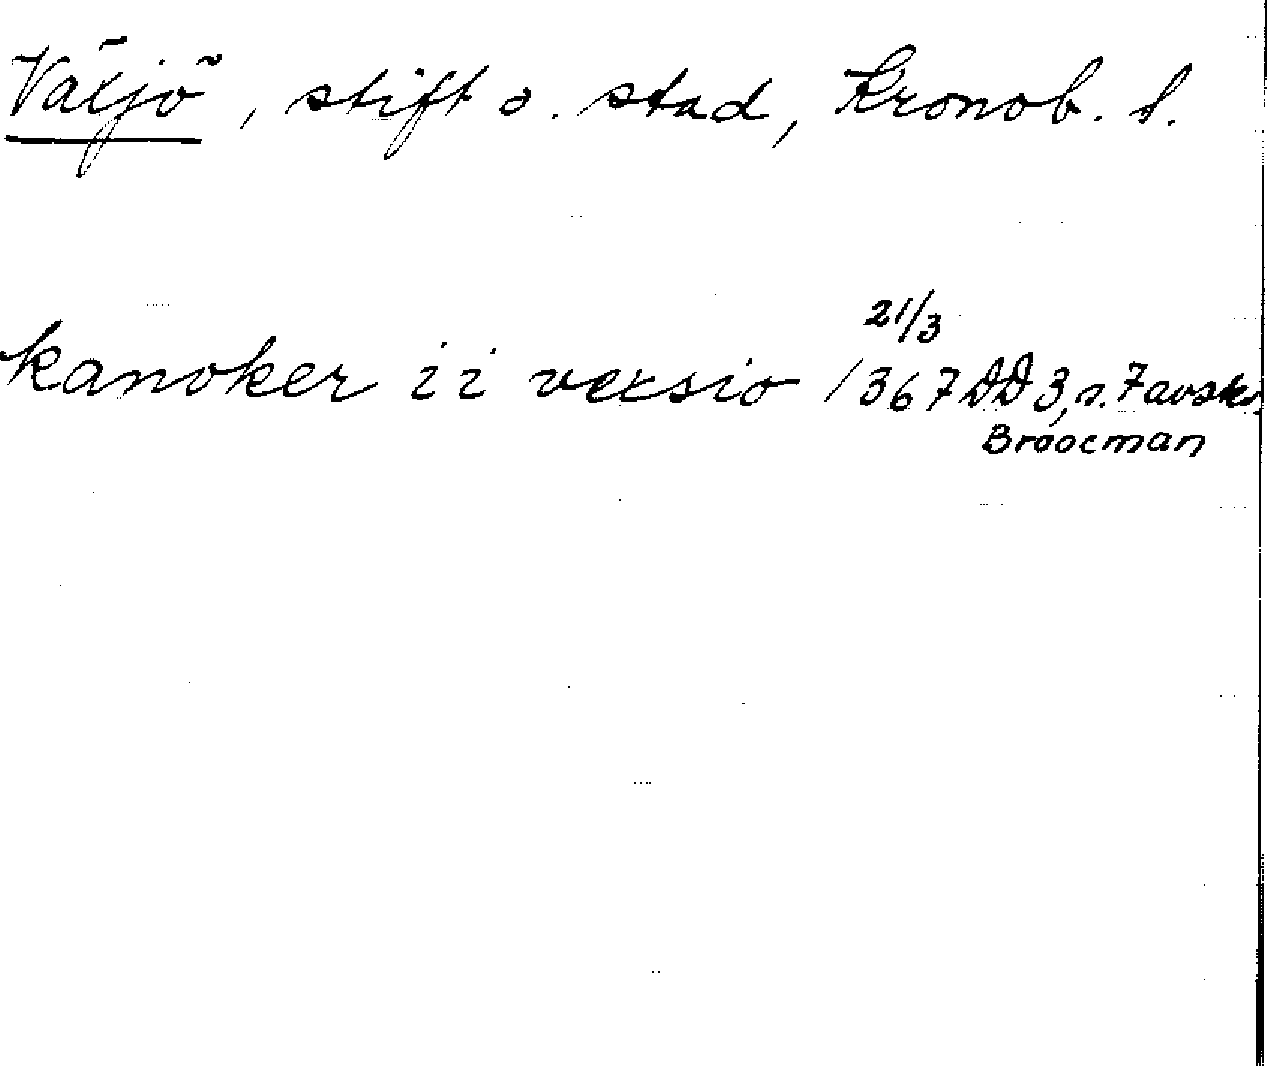 Växjö, stift o. stad, Kronob. l.
21/3
kanoker i i vexsio 1367 DD 3, s. 7 avskr.
Broocman